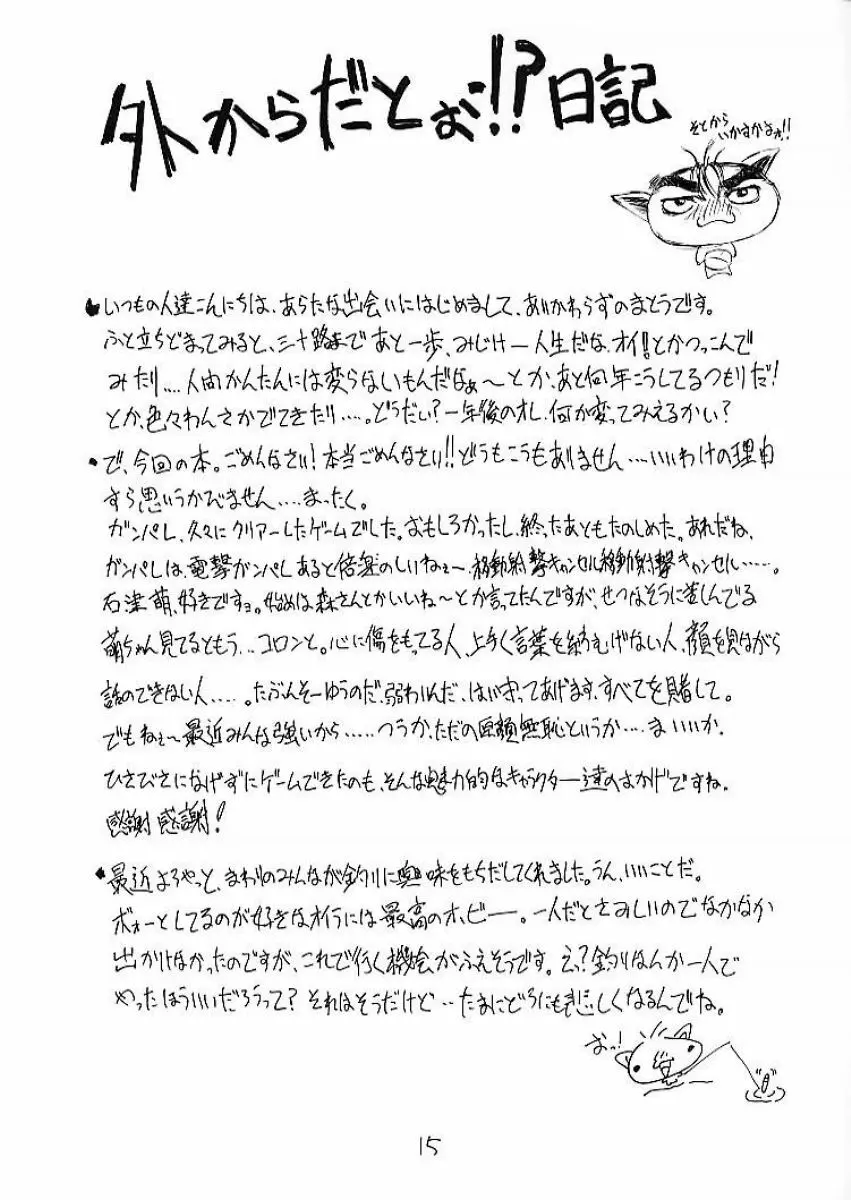 外からだとぉ!!?日記
そとから
いかすかよォ!!
●いつもの人達こんにちは、あらたな出会いにはじめまして、あいかわらずのまとうです。
ふと立ちどまってみると、三十路まであと一歩、みじけー人生だな、オイ!とかつっこんで
みたり....人間かんたんには変らないもんだなぁ〜とか、あと何年こうしてるつもりだ!
とか、色々わんさかでてきたり.....。どうだい?一年後のオレ、何か変ってみえるかい?
●で、今回の本。ごめんなさい!本当ごめんなさい!!どうもこうもありません...いいわけの理由
すら思いうかびません....まったく。
ガンパレ、久々にクリアーしたゲームでした。おもしろかったし、終ったあともたのしめた。あれだね、
ガンパレは、電撃ガンパレあると倍楽のしいねぇ〜、移動射撃キャンセル移動射撃キャンセル.....。
石津萌、好きですョ。始めは森さんとかいいね〜とか言ってたんですが、せつなそうに並んでる
萌ちゃん見てるともう...コロンと。心に傷をもってる人、上手く言葉を紡むげない人、顔を見ながら
話のできない人.....。たぶんそーゆうのだ、弱わいんだ、はい守ってあげます、すべてを賭して。
でもねぇ〜最近みんな強いから.....つうか、ただの厚顔無恥というか....まいいか。
ひさびさになげずにゲームできたのも、そんな魅力的なキャラクター達のおかげですね。
感謝感謝!
●最近よろやっと、まわりのみんなが釣りに興味をもちだしてくれました。うん、いいことだ。
ボォーとしてるのが好きなオイラには最高のホビー。一人だとさみしいのでなかなか
出かけなかったのですが、これで行く機会がふえそうです。え?釣りなんか一人で
やったほうがいいだろうって?それはそうだけど..たまにどうにも悲しくなるんでね。
おっ!
15